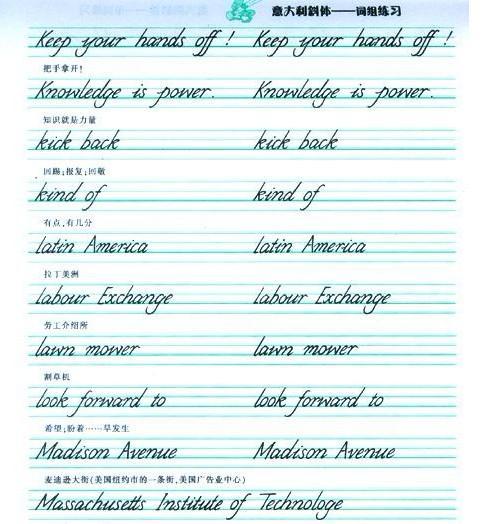 意大利斜体——词组练习
Keep your hands off! Keep your hands off!
把手拿开!
Knowledge is power. Knowledge is power.
知识就是力量
kick back kick back
回踢;报复;回敬
kind of kind of
有点,有几分
latin America latin America
拉丁美洲
labour Exchange labour Exchange
劳工介绍所
lawn mower lawn mower
割草机
look forward to look forward to
希望;盼着……早发生
Madison Avenue Madison Avenue
麦迪逊大街(美国纽约市的一条街,美国广告业中心)
Massachusetts Institute of Technologe